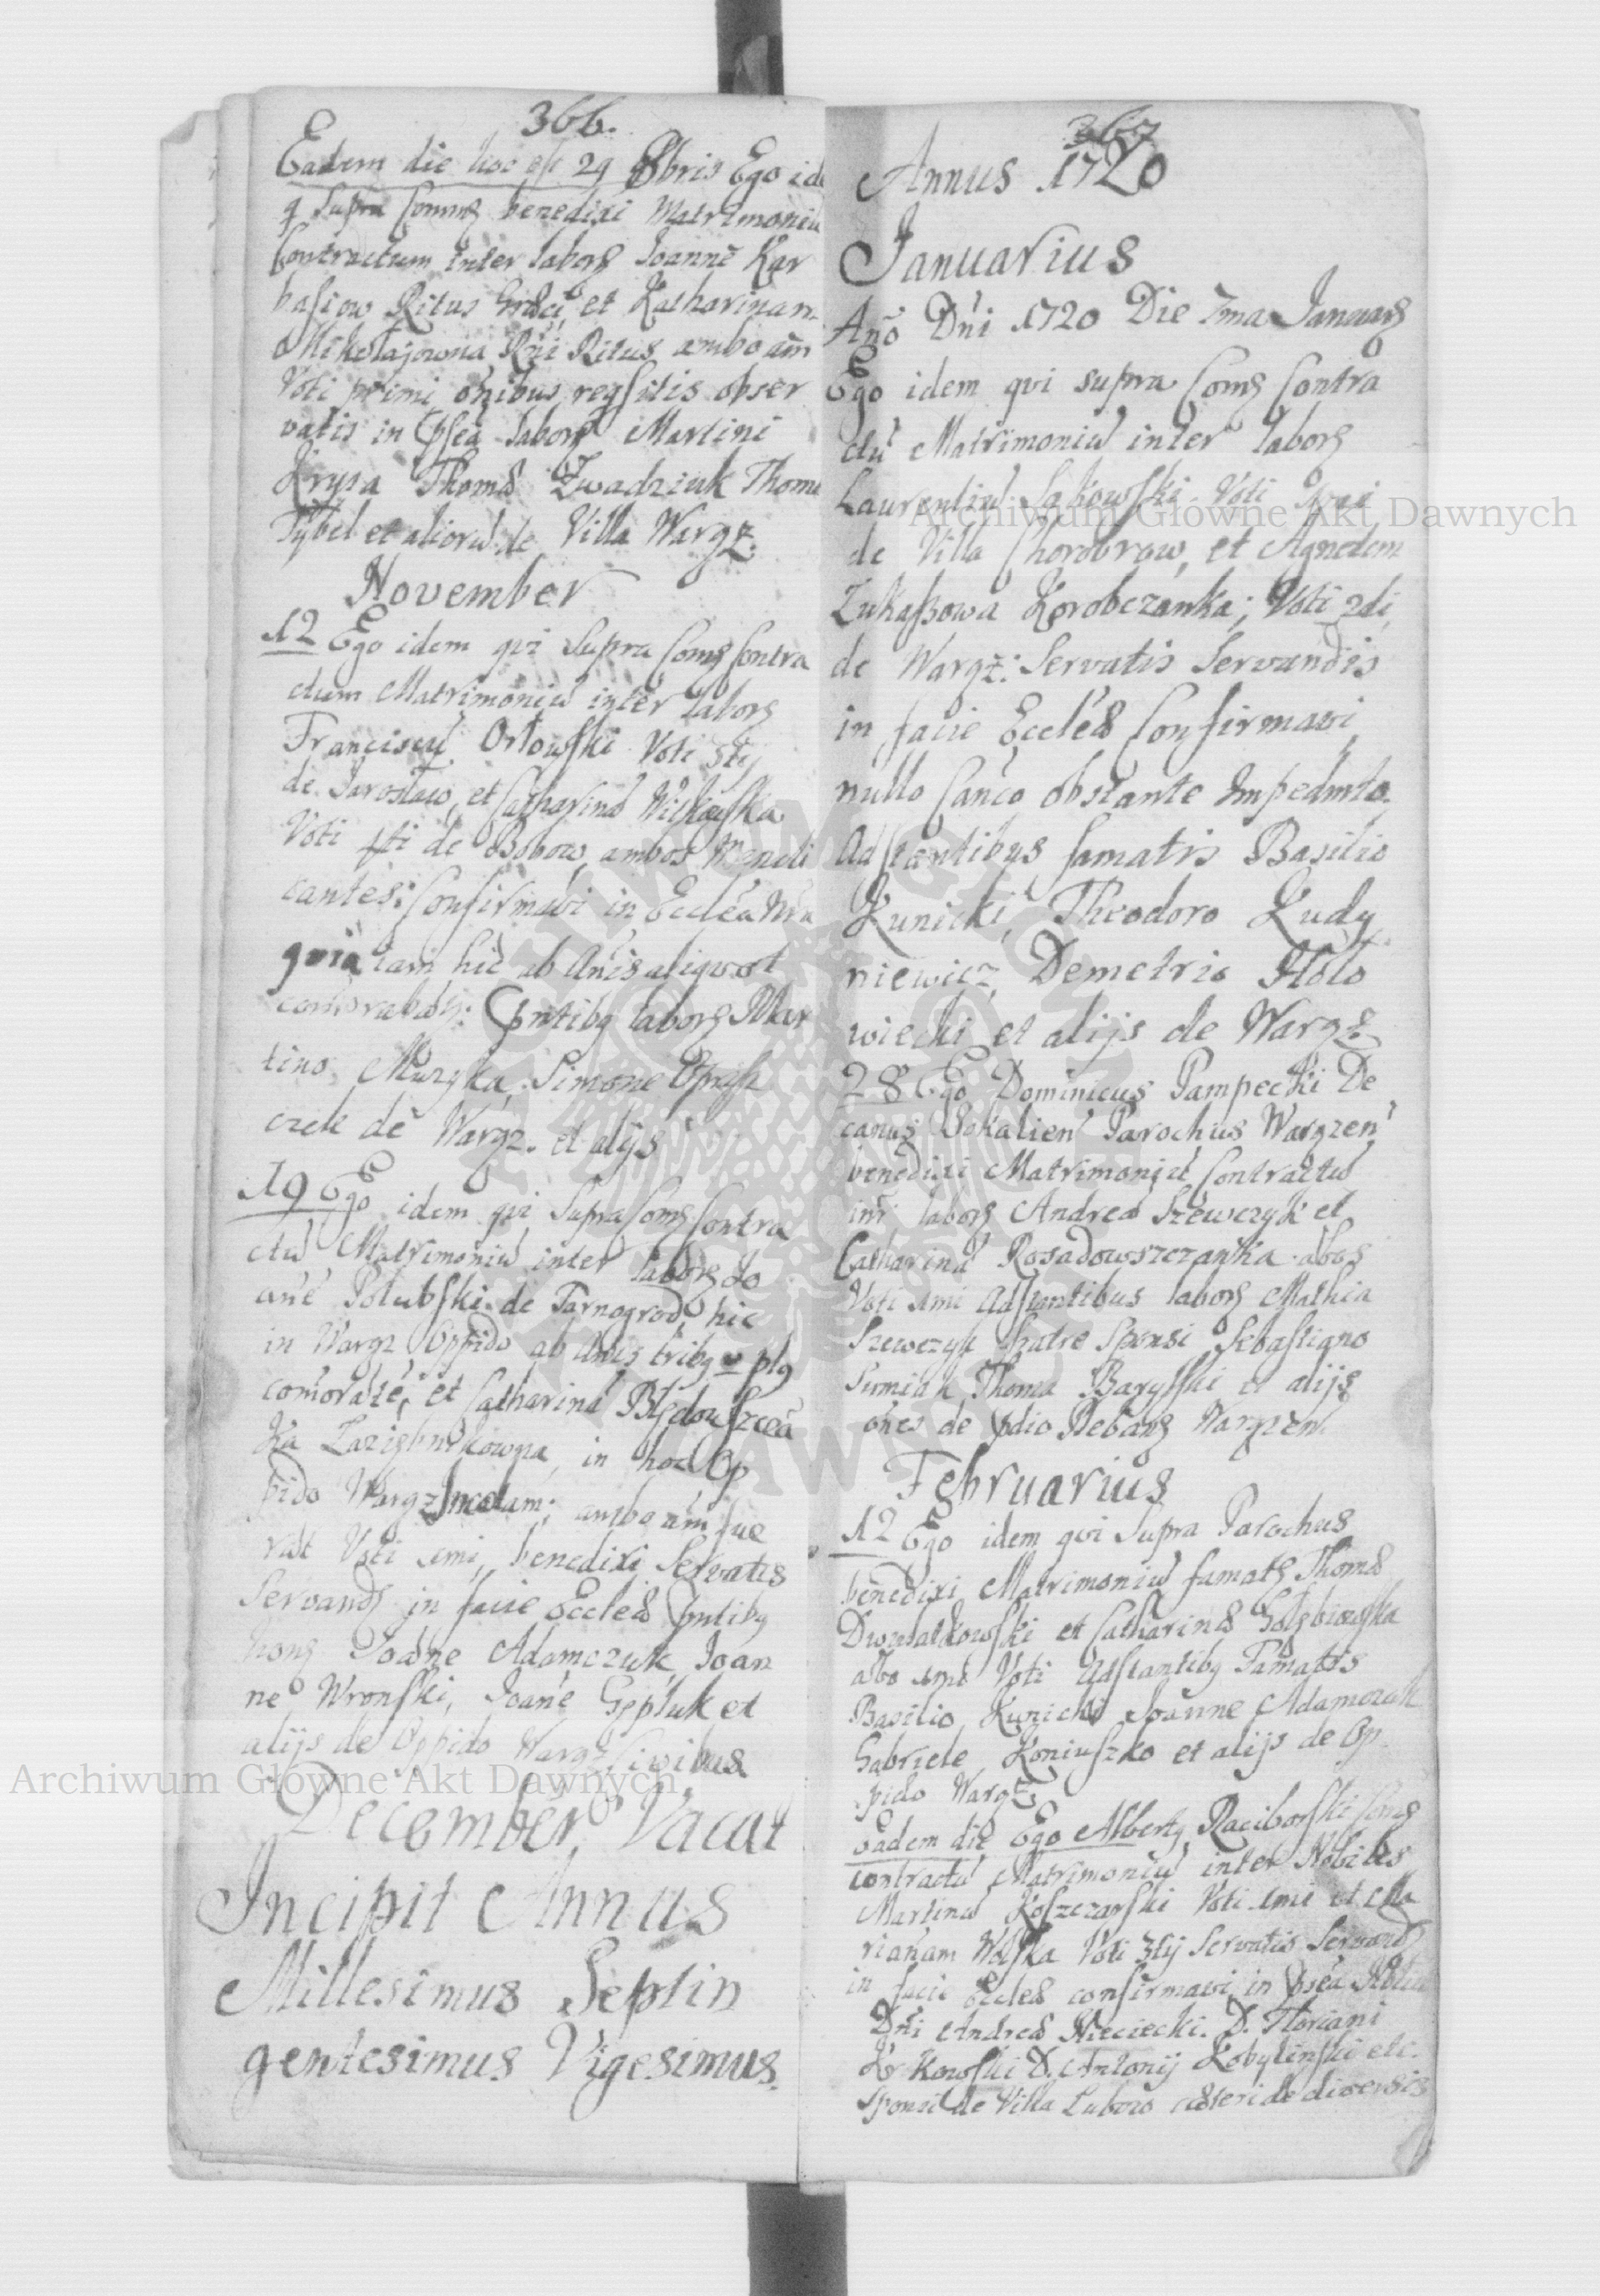 366.
Eadem die hoc est 29 8bris Ego ide
q Supra Comms benedixi Matrimoniu
Contractum inter labors Joanne Kar
basiow Ritus Graeci et Katharinam
Mikołajowna Rni Ritus ambo am
Voti primi onibus regsitis obser
vatis in Psea labors Martini
Krysa Thoma Zwadziuk Thoma
Tybel et alioru de Villa Wargz.
November
12 Ego idem qvi Supra Coms Contra
ctum Matrimoniu inter labors
Franciscu Orłowski Voti 3tij
de Jarosław, et Catharina Wilkowska
Voti 4ti de Bobow, ambos Mendi
cantes: Confirmavi in Ecclea Nra
qvia iam hic ab Anis aliqvot
Pntibq labors Mar
tino Muzyka, Simone
czek de Wargz. et alijs
19 Ego idem qvi Supra Coms Contra
ctu Matrimoniu inter labors Jo
ane Połubski de Tarnogrod, hic
in Wargz Oppido ab Anis tribq plq
comorate, et Catharina Błędowszcza
ka in hoc Op
pido Wargz Incolam; ambo am fue
rat Voti 1mi, benedixi Servatis
Servands in facie Ecclea Pntibq
hons Joane Adamczuk, Joan
ne Wronski, Joane Gepluk et
alijs de Oppido Wargz Civibus
December Vacat
Incipit Annus
Millesimus Septin
gentesimus Vigesimus.
367
Annus 1720
Januarius
Ano Dni 1720 Die 7ma Januars
Ego idem qvi supra Coms Contra
ctu Matrimoniu inter labors
Laurentiu Sakowski Voti
de Villa Chorobrow, et Agnetem
Łukaszowa Korobczanka; Voti 2di,
de Wargz: Servatis Servandis
in facie Ecclea Confirmavi
nullo Canco obstante Impedmto.
Adstantibus famatis Basilio
Kunicki, Theodoro Kudy
niewicz, Demetrio Hoło
wiecki et alijs de Wargz
28 Ego Dominicus Pampecki De
canus Sokalien Parochus Wargzen
benedixi Matrimoniu Contractu
intr labors Andrea Szewczyk et
Catharina Rosadowszczanka abos
Voti 1mi Adstantibus labors Mathia
Szewczyk fratre Sponsi Sebastiano
Thoma Baryski et alijs
ones de pdio Plebans Wargzen.
Februarius
12 Ego idem qvi Supra Parochus
benedixi Matrimoniu famats Thoma
et Catharina Gołębiowska
abo 1mi Voti Adstantibq Famatis
Basilio Kunicki Joanne Adamczuk
Gabriele Koniuszko et alijs de Op
pido Wargz
Eadem die Ego Albertq Raciborski Coms
contractu Matrimoniu inter Nobiles
Martinu Koszczarski Voti 1mi et Ma
rianam Wolska Voti 3tij Servatis Servands
in facie Ecclea confirmavi in Psea
Dni Andrea D. Floriani
D. Antonij Kobylinski
Sponsi de Villa caeteri de diversis